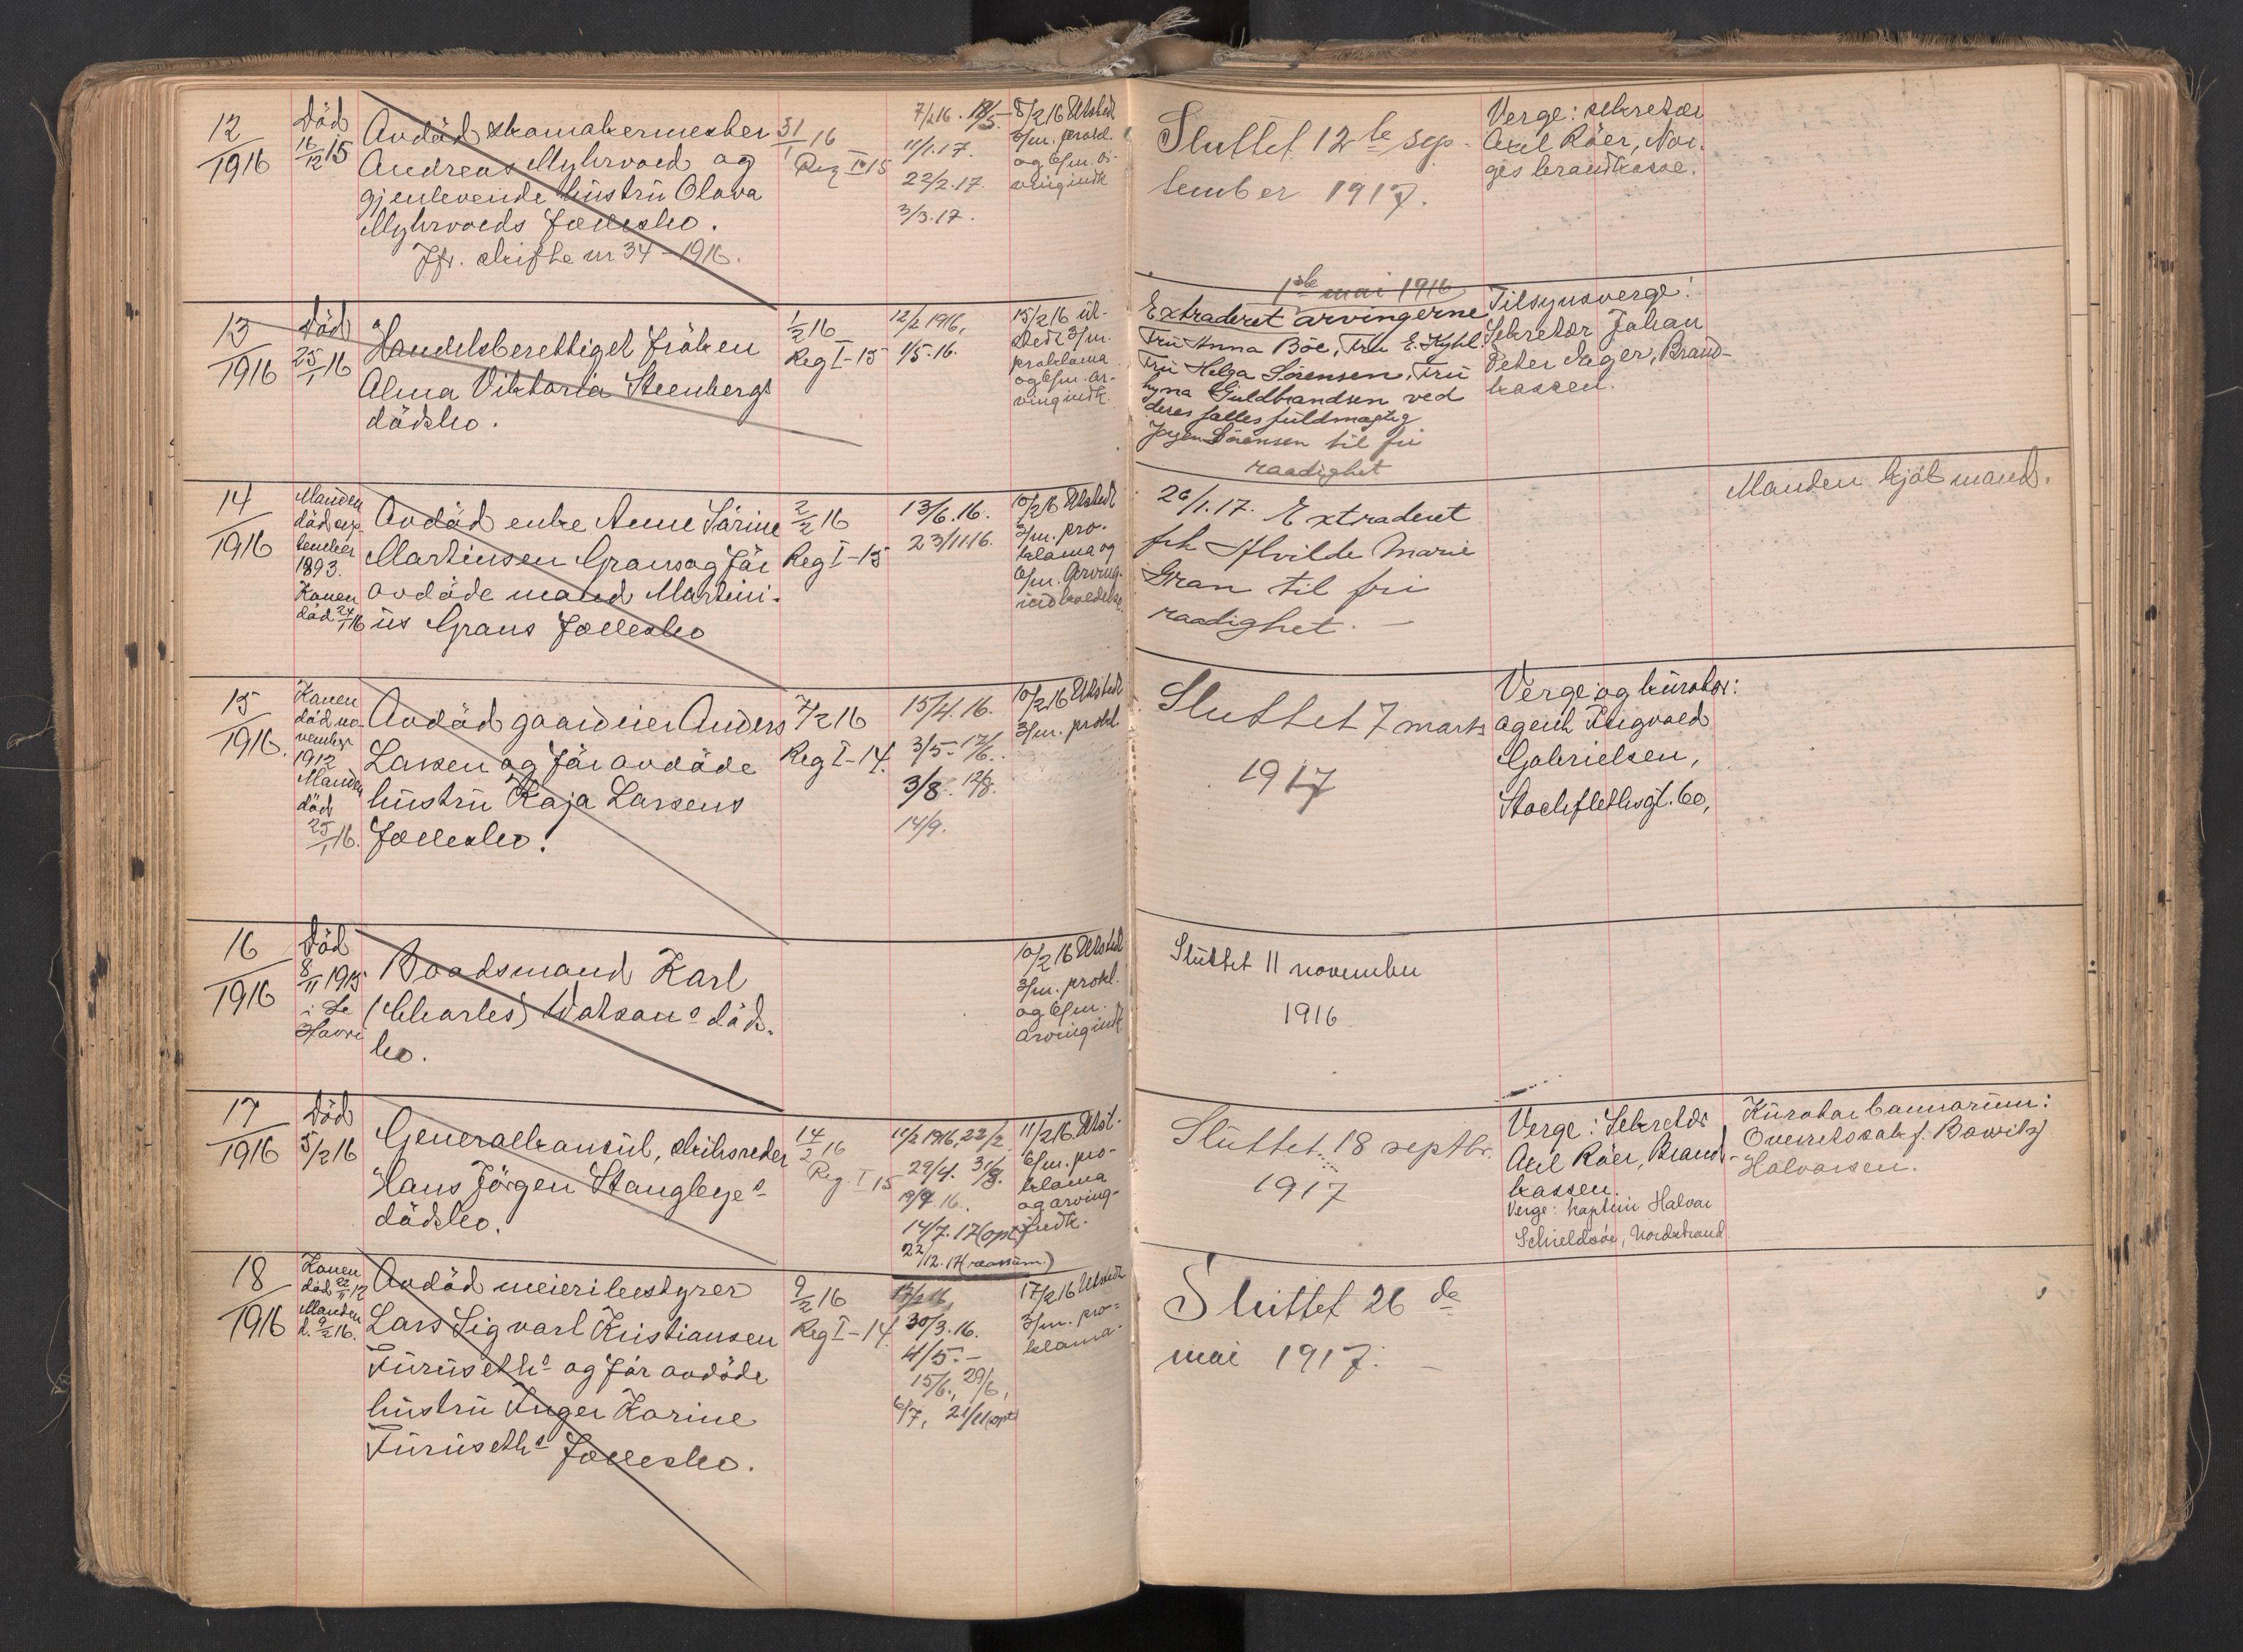 12
1916
Död
16/12 15
Avdöd skomakermester
Andreas Myhrvold og
gjenlevende hustrü Olava
Myhrvolds fællesbo.
Jfr. skifte nr 34 - 1916.
31/1 16
Reg I-15
7/2 16.
11/1.17.
22/2.17.
3/3.17.
8/2 16 Utstedt
3/m. prokl.
og 6/m. ar-
vingindk
Sluttet 12te sep-
tember 1917.
Verge: sekretær
Axel Röer, Nor-
ges brandkasse.
13
1916
Död
25/1 16
Handelsberettiget fröken
Alma Viktoria Steenbergs
dödsbo.
1/2 16
Reg I-15
12/2 1916,
1/5.16.
15/2 16 üt-
stedt 3/m.
proklama
og 6/m. ar-
vingindk.
1ste mai 1916
Extraderet arvingerne
Frü Anna Böe, Frü E. Kyhl.
Frü Helga Sörensen, Frü
Guldbrandsen ved
deres fælles füldmægtig
Sörensen til fri
raadighet
Tilsynsverge:
Sekretær Johan
Peter Jæger, Brand-
kassen.
14
1916
Manden
död sep-
tember
1893.
Konen
död 24/1 16
Avdöd enke Anne Särine
Martinsen Grans og før
avdöde mand Martini-
üs Grans fællesbo
2/2 16
Reg I-15
13/6.16.
23/11 16.
10/2 16 Utstedt
3/m. pro-
klama og
6/m. Arving-
indkaldelse.
26/1.17. Extraderet
frk Alvilde Marie
Gran til fri
raadighet. —
Manden kjöbmand.
15
1916.
Konen
död no-
vember
1912
Manden
död
25/1 16.
Avdöd gaardeier Anders
Larsen og før avdöde
hüstrü Kaja Larsens
fællesbo.
7/2 16
Reg I-14.
15/4.16.
3/5. 17/6.
3/8. 12/8.
14/9.
10/2 16 Utstedt
3/m. prokl
Sluttet 7 marts
1917
Verge og kürator:
agent Ringvold
Gabrielsen,
Stockflethsgt. 60,
16
1916
Död
8/11 1915
i Le
Havre
Baadsmand Karl
(Charles) Watsons döds-
bo.
10/2 16 Utstedt
3/m. prokl.
og 6/m.
arvingindk
Slüttet 11 november
1916
17
1916
Död
5/2 16
Generalkonsül, skibsreder
Hans Jörgen Stangbyes
dödsbo.
14/2 16
Reg. I 15
11/2 1916, 22/2
29/4. 31/8.
19/9 16.
14/7.17 (opt)
22/12.17 (reassüm.)
11/2 16. Utst.
6/m. pro-
klama
og arving-
indk.
Slüttet 18 septbr.
1917
Verge: Sekretær
Axel Röer, Brand-
kassen.
Verge: kaptein Halvor
Schieldsöe, Nordstrand
Kürator bonorum:
Overretssakf. Bowitz
Halvorsen.
18
1916
Konen
död 22/11 12
Manden
d. 9/2 16.
Avdöd meieribestyrer
Lars Sigvart Kristiansen
Fürüseths og før avdöde
hüstrü Inger Karine
Fürüseths fællesbo.
9/2 16
Reg I-14.
17/2 16
30/3.16.
4/5. —
15/6., 29/6,
6/7, 21/11 (opt)
17/2 16 Utstedt
3/m. pro-
klama.
Sluttet 26de
mai 1917. —